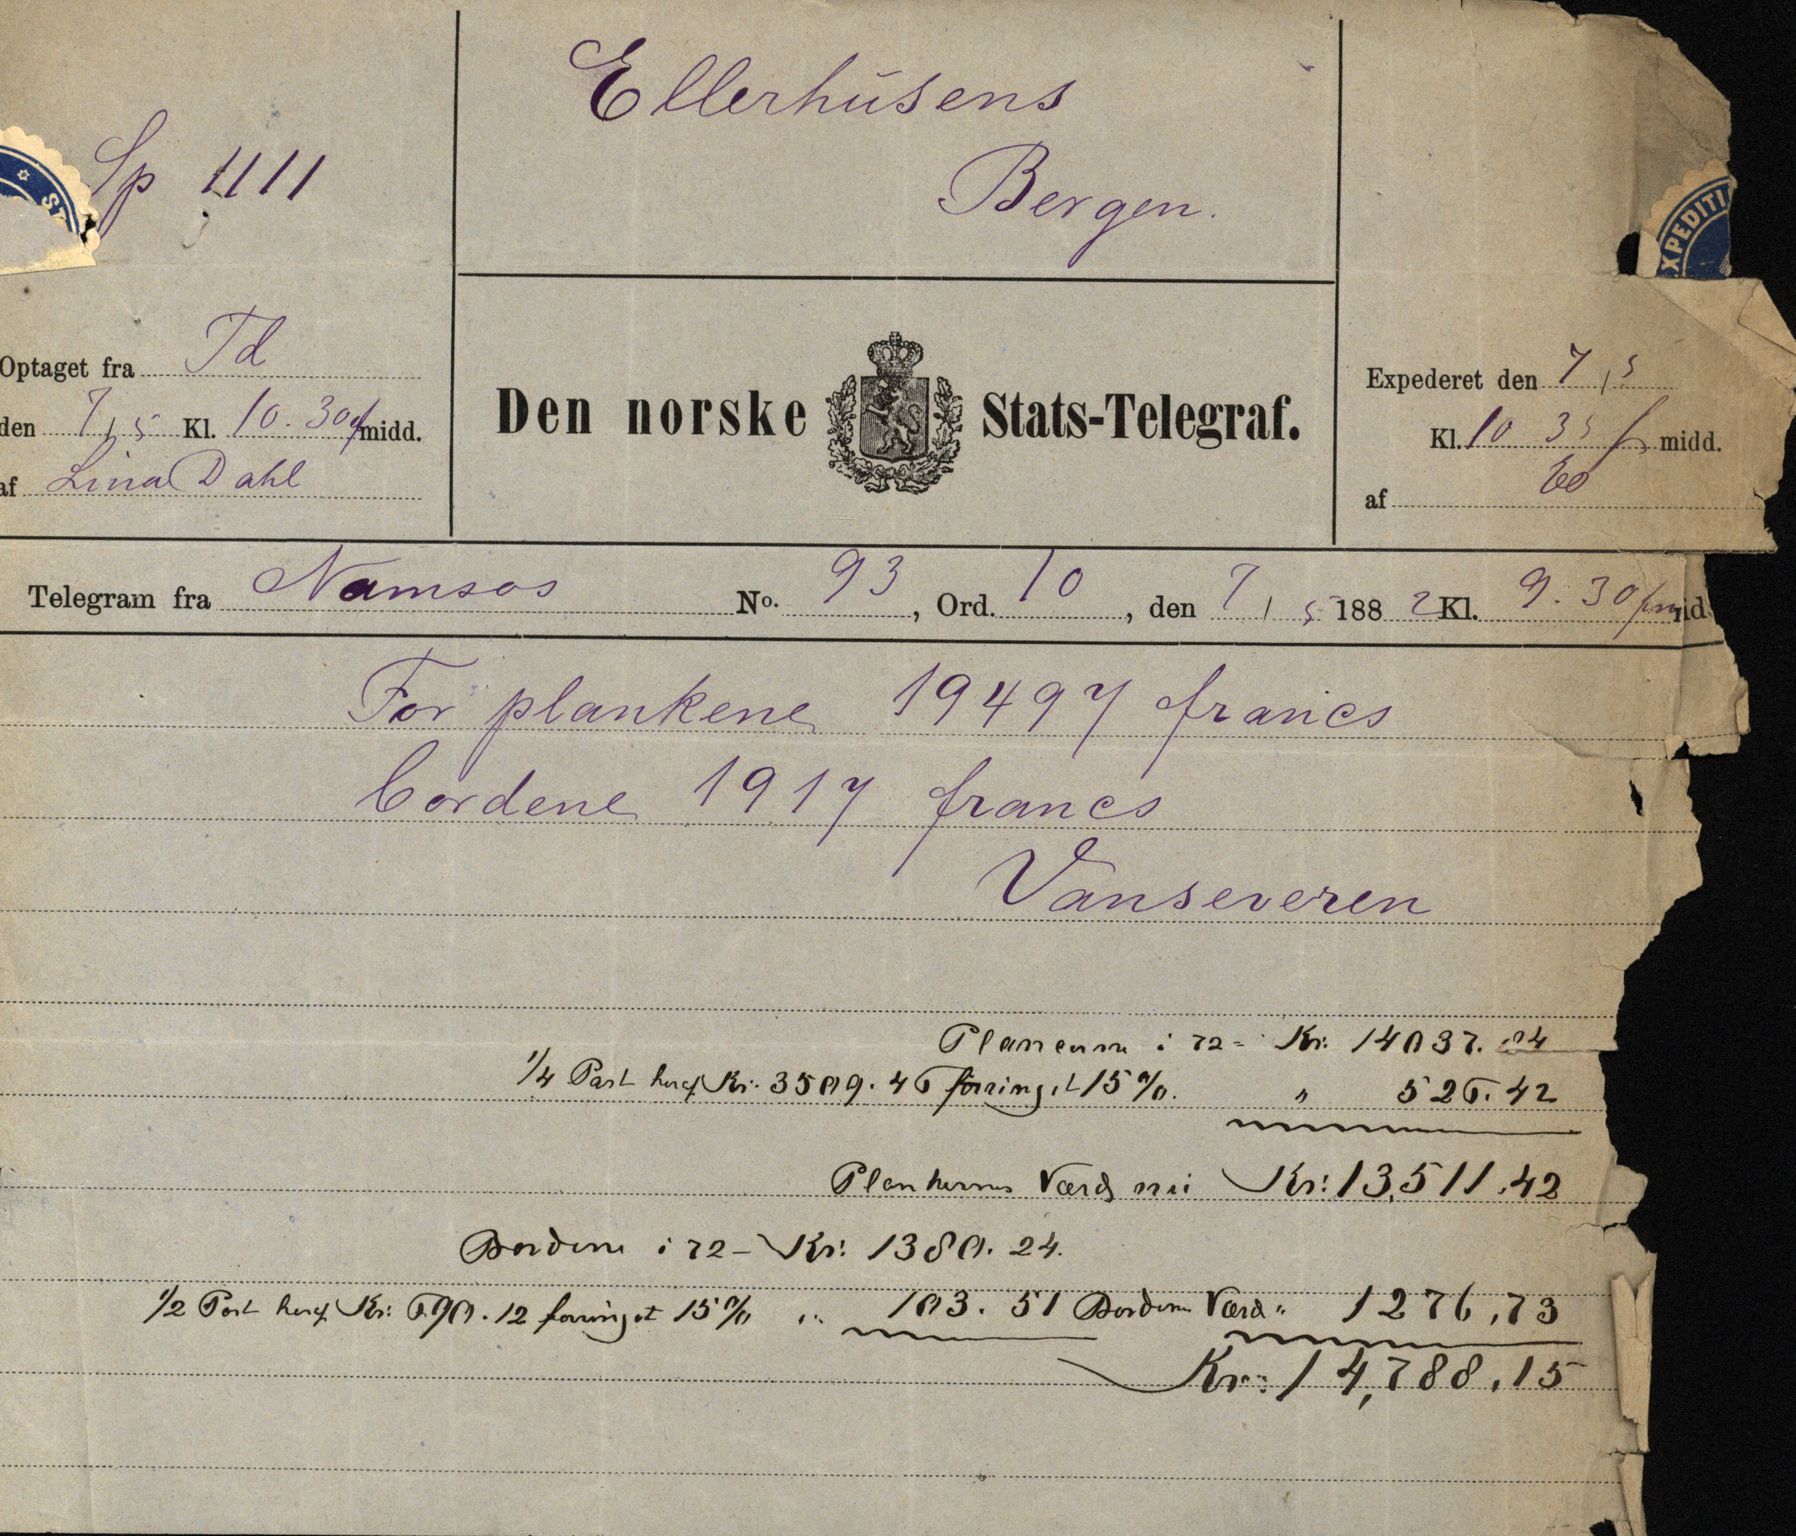 Ellerhüsens
Bergen.
Sp 1111
Optaget fra Td
den 7/5 Kl. 10.30 f midd.
af Lina Dahl
Den norske Stats-Telegraf.
XPEDITI
Expederet den 7/5
Kl. 10 35 f midd.
af
Telegram fra Namsos No. 93, Ord. 10, den 7/5 1882 Kl. 9.30 fm mid
For plankene 19497 francs
bordene 1917 francs
Vanseveren
Plankerne i 72 = Kr: 14037.84
1/4 Part heraf Kr: 3509.46 forringet 15%. " 526.42
Plankernes Værdi nu Kr: 13,511.42
Bordene i 72 – Kr: 1380.24.
1/2 Part heraf Kr: 690.12 forringet 15% " 103.51 Bordenes Værd " 1276,73
Kr: 14,788.15